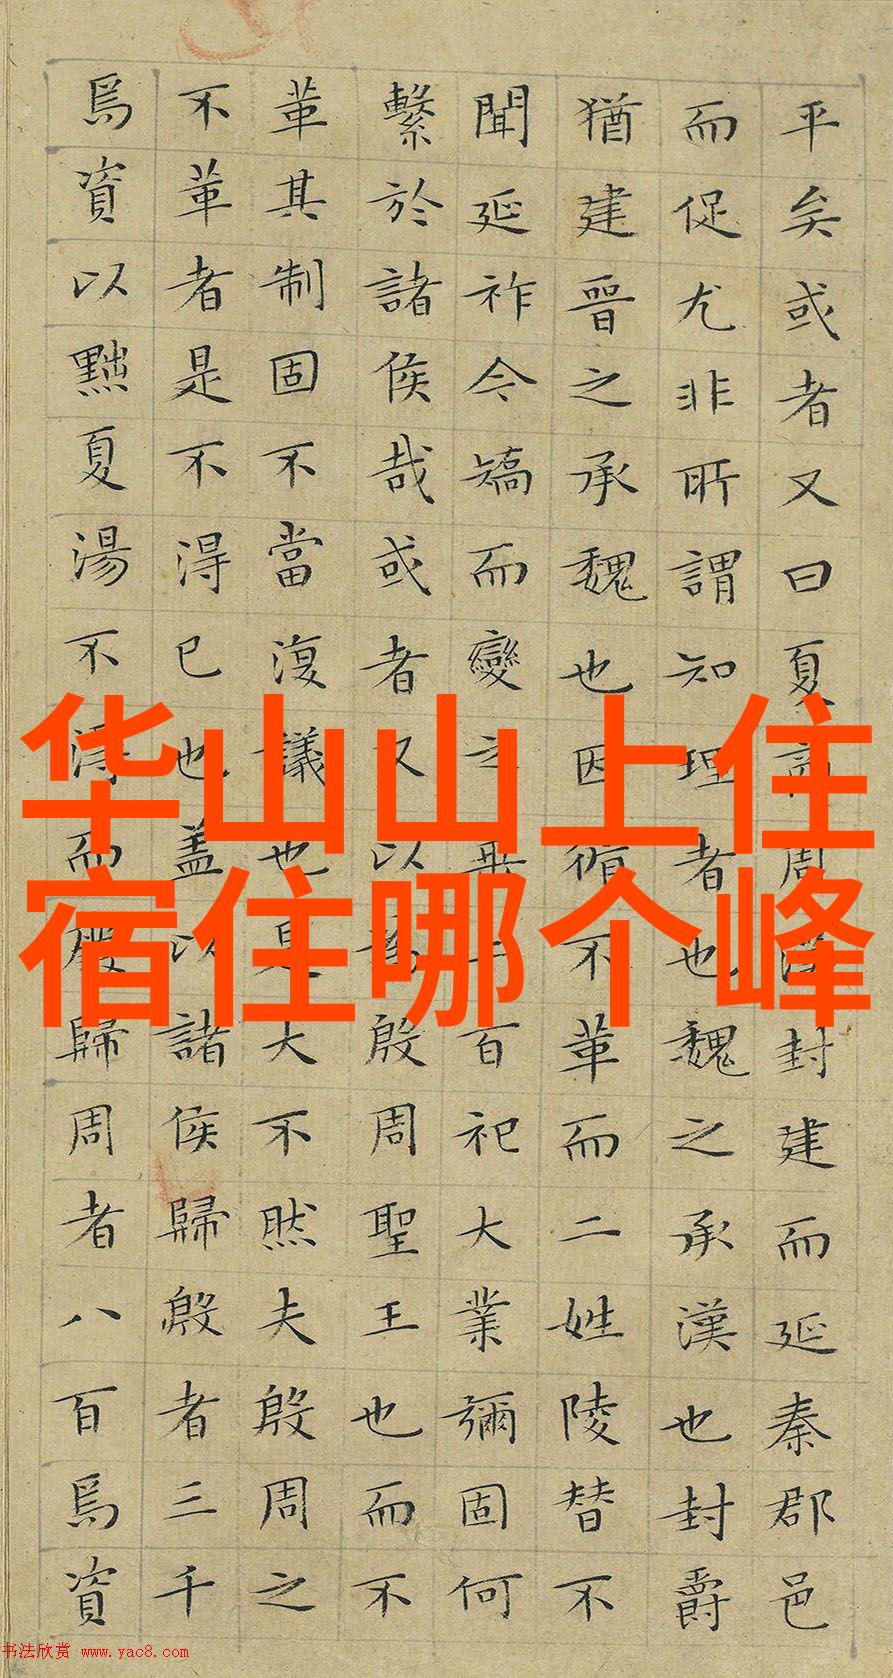 平矣或者又曰夏商周漢封建而延秦郡邑
而促尤非所謂知理者也魏之承漢也封爵
猶建晉之承魏也因循不革而二姓陵替不
聞延祚今矯而變之垂二百祀大業彌固何
繫於諸侯哉或者又以為殷周聖王也而不
革其制固不當復議也是大不然夫殷周之
不革者是不得已也盖以諸侯歸殷者三千
焉資以黜夏湯不得而廢歸周者八百焉資
华山山上住
宿住哪个峰
书法欣赏 www.yac8.com